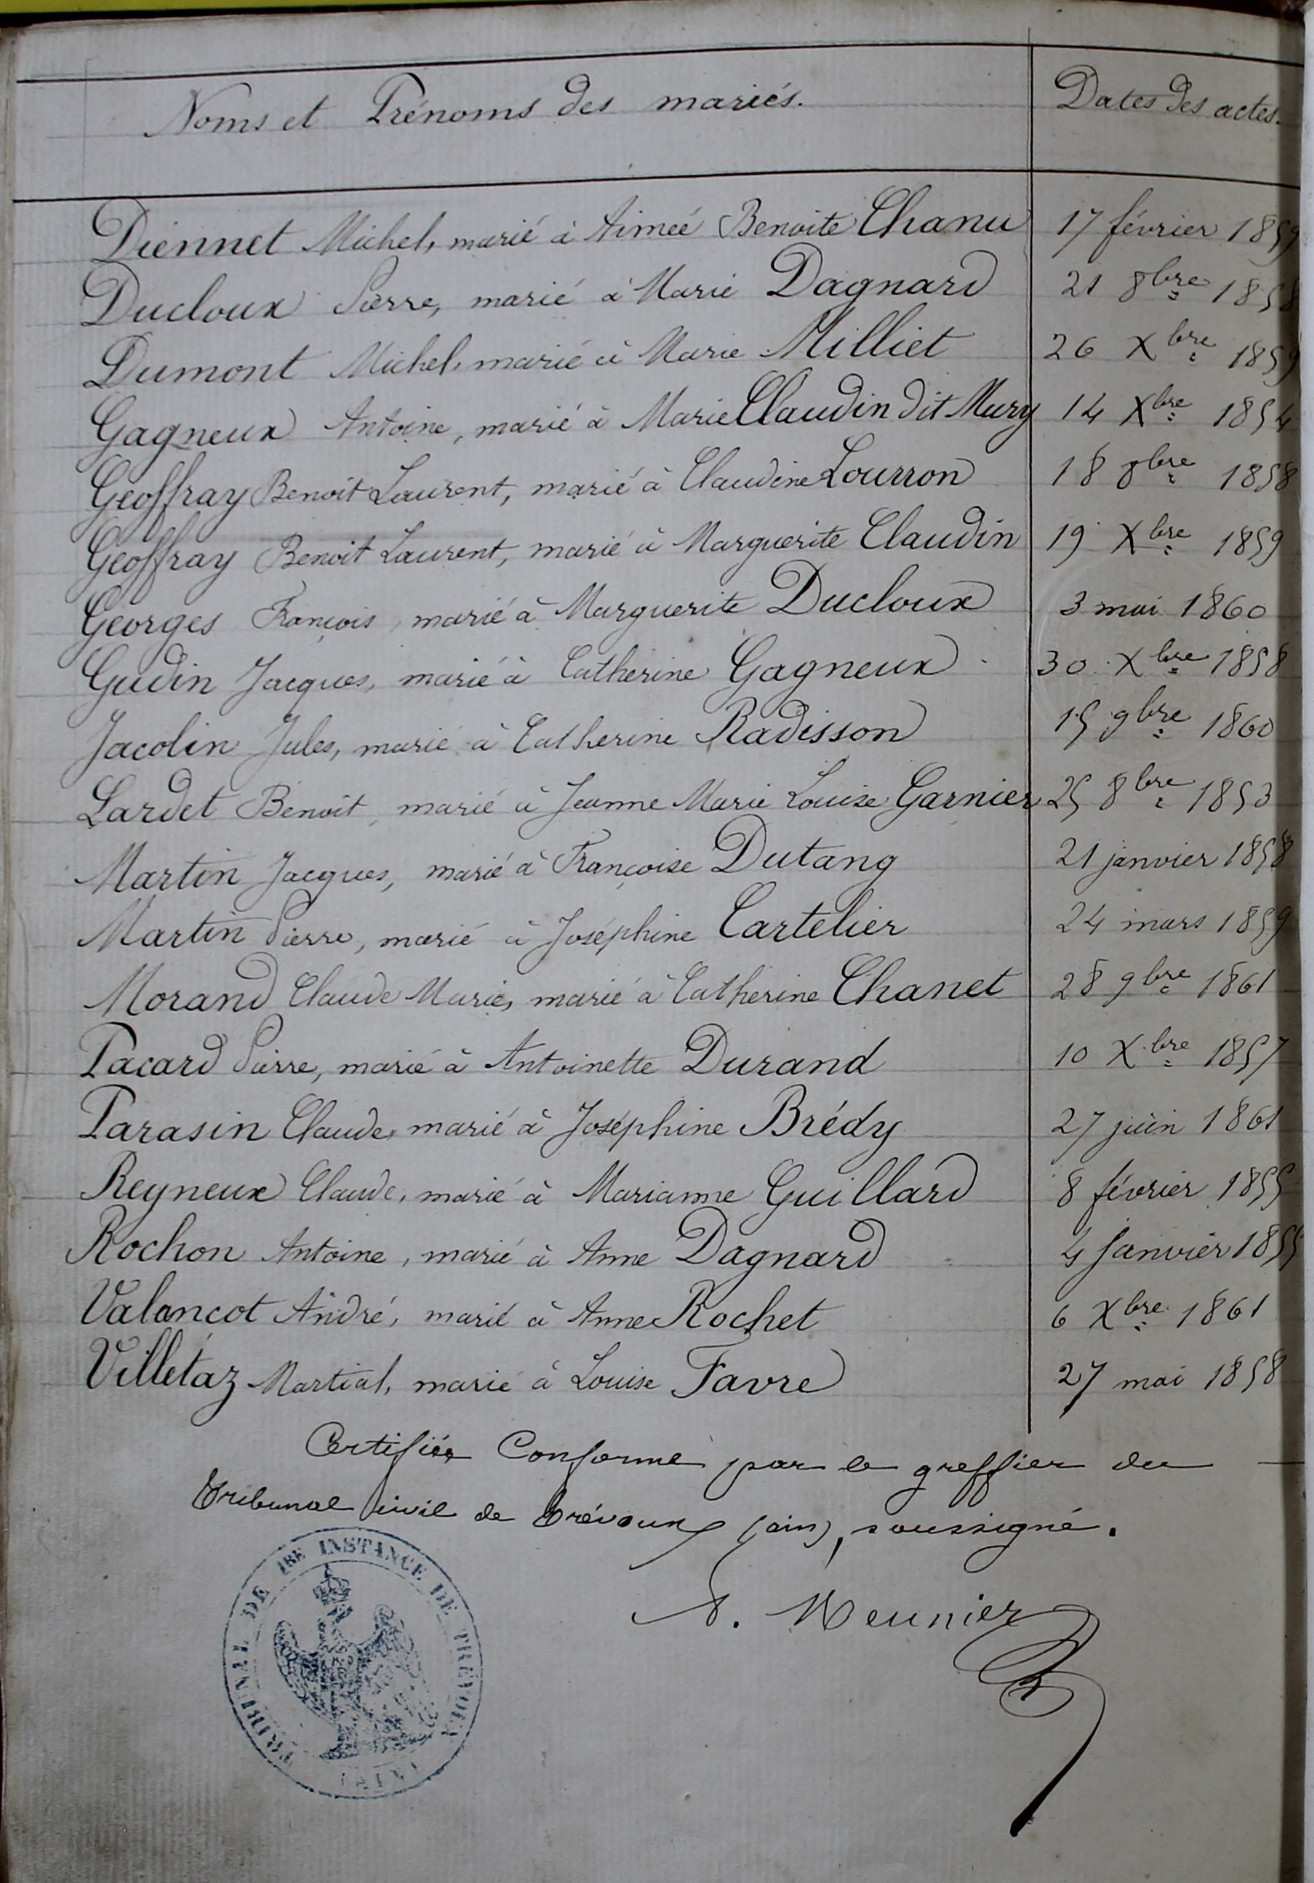 Noms et Prénoms des mariés. Dates des actes.
Diennet Michel, marié à Aimée Benoite Chanu 17 février 1859
Ducloux Pierre, marié à Marie Dagnard 21 8bre 1858
Dumont Michel, marié à Marie Milliet 26 Xbre 1859
Gagneux Antoine, marié à Marie Claudin dit Mury 14 Xbre 1854
Geoffray Benoit Laurent, marié à Claudine Lourron 18 8bre 1858
Geoffray Benoit Laurent, marié à Marguerite Claudin 19 Xbre 1859
Georges François, marié à Marguerite Ducloux 3 mai 1860
Gudin Jacques, marié à Catherine Gagneux 30 Xbre 1858
Jacolin Jules, marié à Catherine Radisson 15 9bre 1860
Lardet Benoit, marié à Jeanne Marie Louise Garnier 25 8bre 1853
Martin Jacques, marié à Françoise Dutang 21 janvier 1858
Martin Pierre, marié à Joséphine Cartelier 24 mars 1859
Morand Claude Marie, marié à Catherine Chanet 28 9bre 1861
Pacard Pierre, marié à Antoinette Durand 10 Xbre 1857
Parasin Claude, marié à Joséphine Brédy 27 juin 1861
Reyneux Claude, marié à Marianne Guillard 8 février 1855
Rochon Antoine, marié à Anne Dagnard 4 Janvier 1855
Valancot André, marié à Anne Rochet 6 Xbre 1861
Villetaz Martial, marié à Louise Favre 27 mai 1858
Certifiée Conforme par le greffier du
Tribunal civil de Trévoux (ain), soussigné.
A. Meunier
TRIBUNAL DE 1RE INSTANCE DE TRÉVOUX
(AIN)